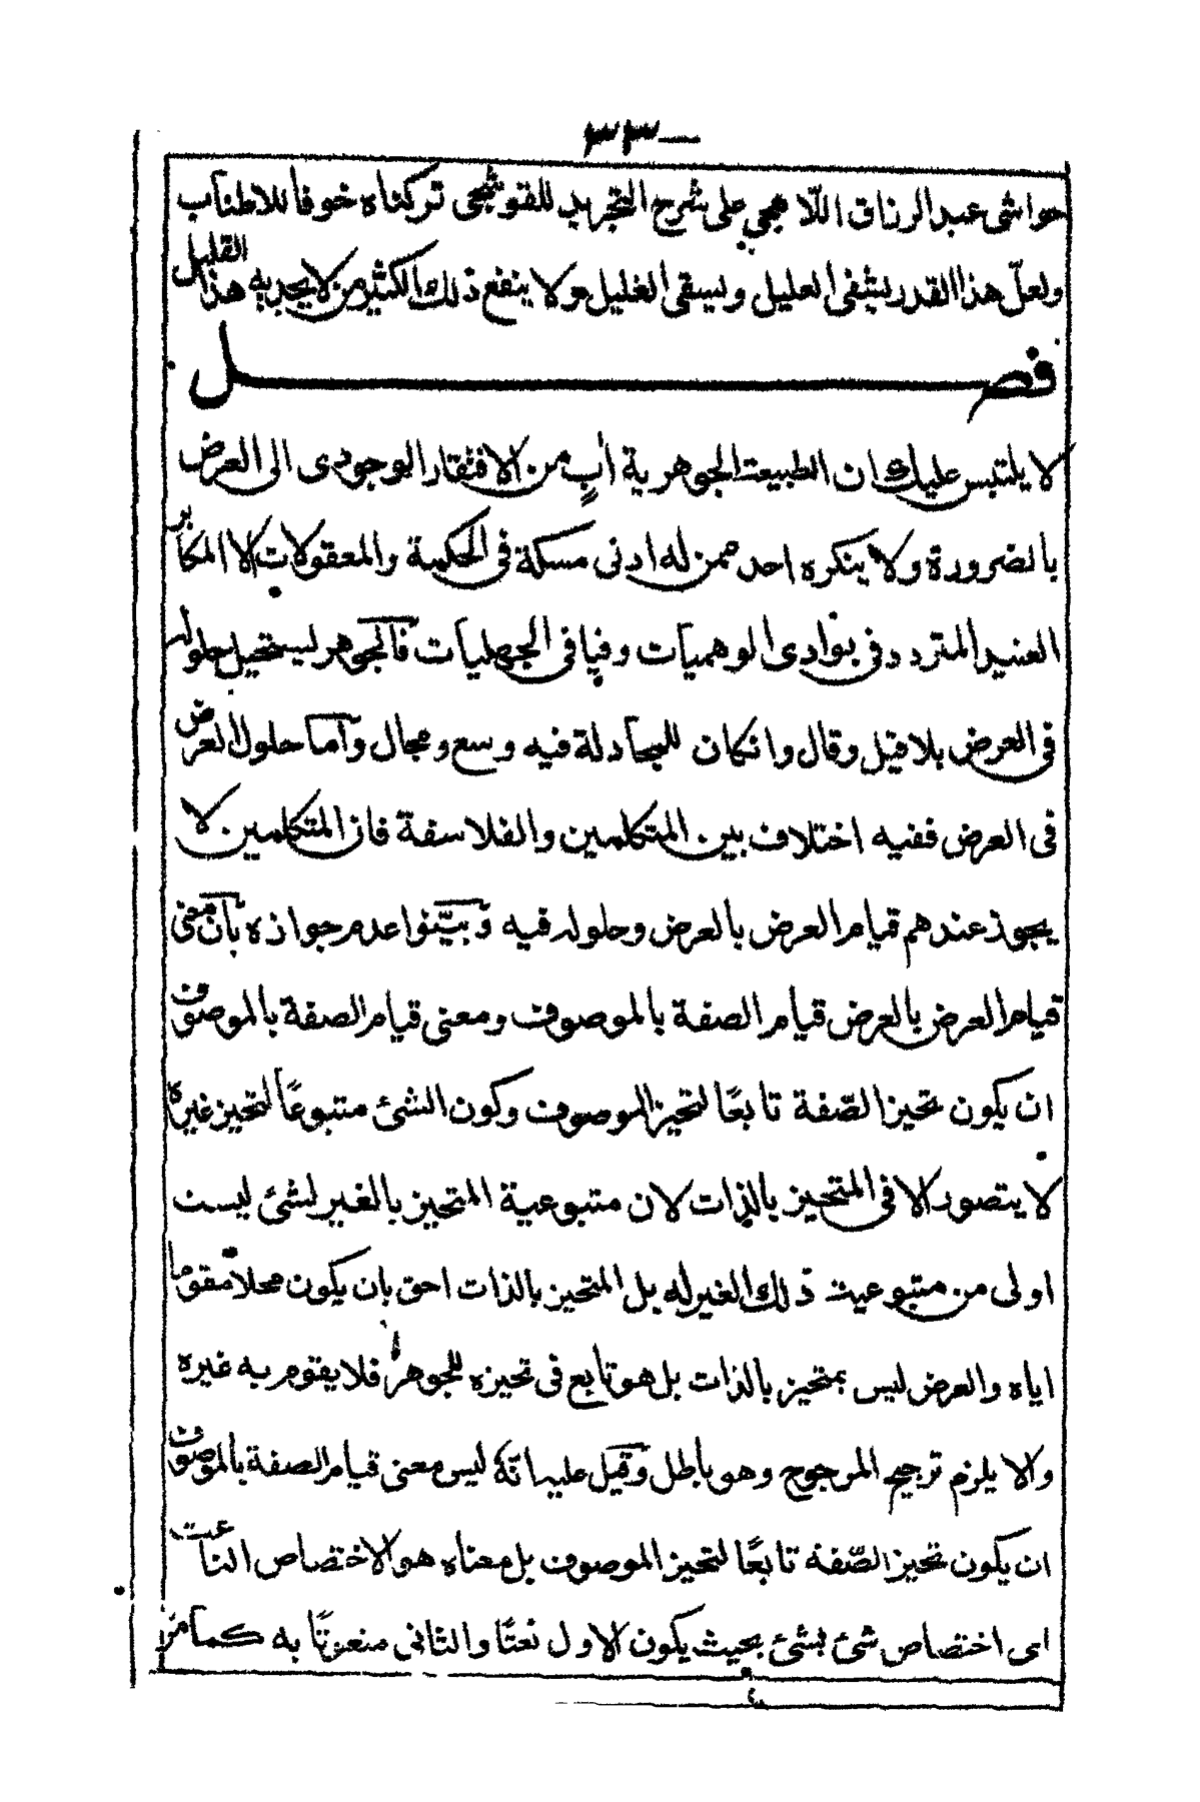 ٣٣
حواشى عبد الرزاق اللّاهجى على شرح التجريد للقوشجى تركناه خوفا للاطناب
ولعلّ هذا القدر يشفى العليل ويسقى الغليل ولا ينفع ذلك الكثير من لا يجديه هذا القليل
فصل
لا يلتبس عليك ان الطبيعة الجوهرية أبٍ من الافتقار الوجودى الى العرض
بالضرورة ولا ينكره احد ممن له ادنى مسكة فى الحكمة والمعقولات الا المكابر
العنيد المتردد فى بوادى الوهميات وفيافى الجهليات فالجوهر ليستحيل حلوله
فى العرض بلا قيل وقال وانكان للمجادلة فيه وسع ومجال واما حلول العرض
فى العرض ففيه اختلاف بين المتكلمين والفلاسفة فان المتكلمين لا
يجوز عندهم قيام العرض بالعرض وحلوله فيه وبيّنوا عدم جوازه بان معنى
قيام العرض بالعرض قيام الصفة بالموصوف ومعنى قيام الصفة بالموصوف
ان يكون تحيز الصّفة تابعًا لتحيز الموصوف وكون الشئ متبوعًا لتحيز غيره
لا يتصور الا فى المتحيز بالذات لان متبوعية المتحيز بالغير لشئ ليست
اولى من متبوعيت ذلك الغير له بل المتحيز بالذات احق بان يكون محلا مقوما
اياه والعرض ليس بمتحيز بالذات بل هو تابع فى تحيزه للجوهر فلا يقوم به غيره
والا يلزم ترجيح المرجوح وهو باطل وقيل عليه انّه ليس معنى قيام الصفة بالموصوف
ان يكون تحيز الصّفة تابعًا لتحيز الموصوف بل معناه هو الاختصاص الناعت
اى اختصاص شئ بشئ بحيث يكون الاول نعتًا والثانى منعوتًا به كما مرّ